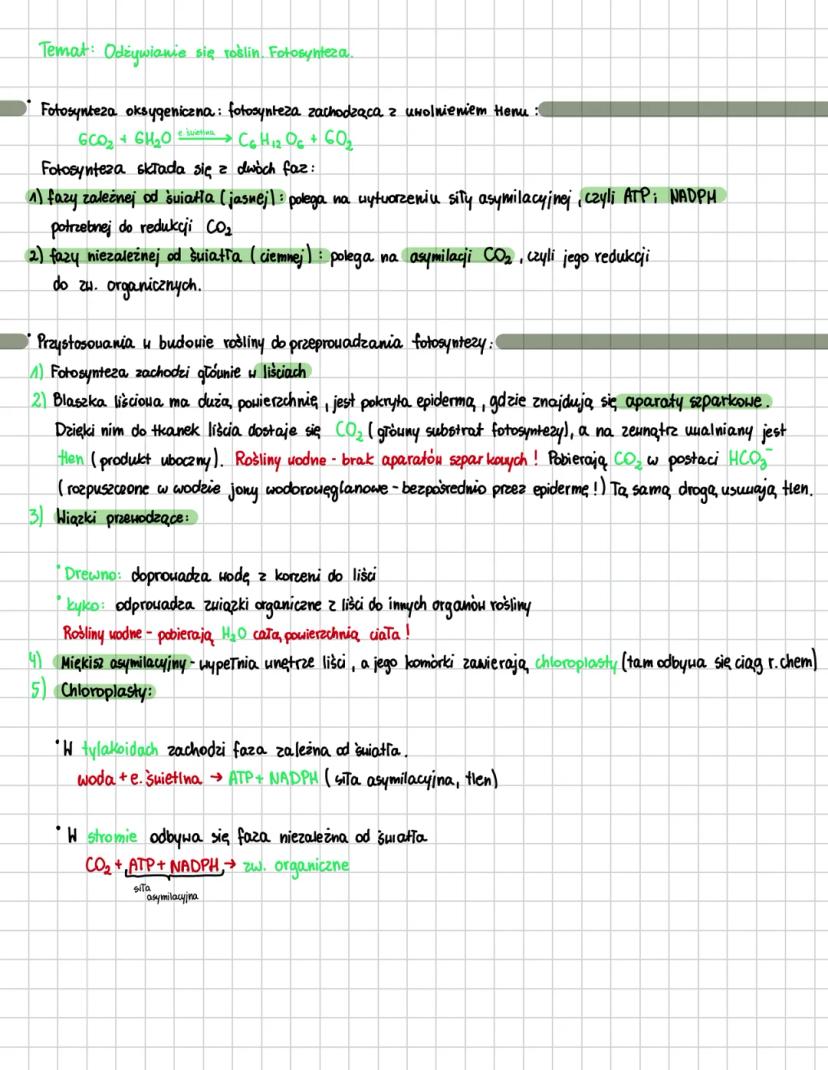 Temat: Odżywianie się roślin. Fotosynteza.
• Fotosynteza oksygeniczna: fotosynteza zachodząca z uwolnieniem tlenu:
6CO₂ + 6H₂O e. świetlna → C₆H₁₂O₆ + 6O₂
Fotosynteza składa się z dwóch faz:
1) fazy zależnej od światła (jasnej): polega na wytworzeniu siły asymilacyjnej, czyli ATP i NADPH
potrzebnej do redukcji CO₂
2) fazy niezależnej od światła (ciemnej): polega na asymilacji CO₂, czyli jego redukcji
do zw. organicznych.
• Przystosowania w budowie rośliny do przeprowadzania fotosyntezy:
1) Fotosynteza zachodzi głównie w liściach
2) Blaszka liściowa ma dużą powierzchnię, jest pokryta epidermą, gdzie znajdują się aparaty szparkowe.
Dzięki nim do tkanek liścia dostaje się CO₂ (główny substrat fotosyntezy), a na zewnątrz uwalniany jest
tlen (produkt uboczny). Rośliny wodne - brak aparatów szparkowych! Pobierają CO₂ w postaci HCO₃⁻
(rozpuszczone w wodzie jony wodorowęglanowe - bezpośrednio przez epidermę!) Tą samą drogą usuwają tlen.
3) Wiązki przewodzące:
• Drewno: doprowadza wodę z korzeni do liści
• Łyko: odprowadza związki organiczne z liści do innych organów rośliny
Rośliny wodne - pobierają H₂O całą powierzchnią ciała!
4) Miękisz asymilacyjny - wypełnia wnętrze liści, a jego komórki zawierają chloroplasty (tam odbywa się ciąg r. chem)
5) Chloroplasty:
• W tylakoidach zachodzi faza zależna od światła.
woda + e. świetlna → ATP + NADPH (siła asymilacyjna, tlen)
• W stromie odbywa się faza niezależna od światła
CO₂ + ATP + NADPH → zw. organiczne
siła
asymilacyjna